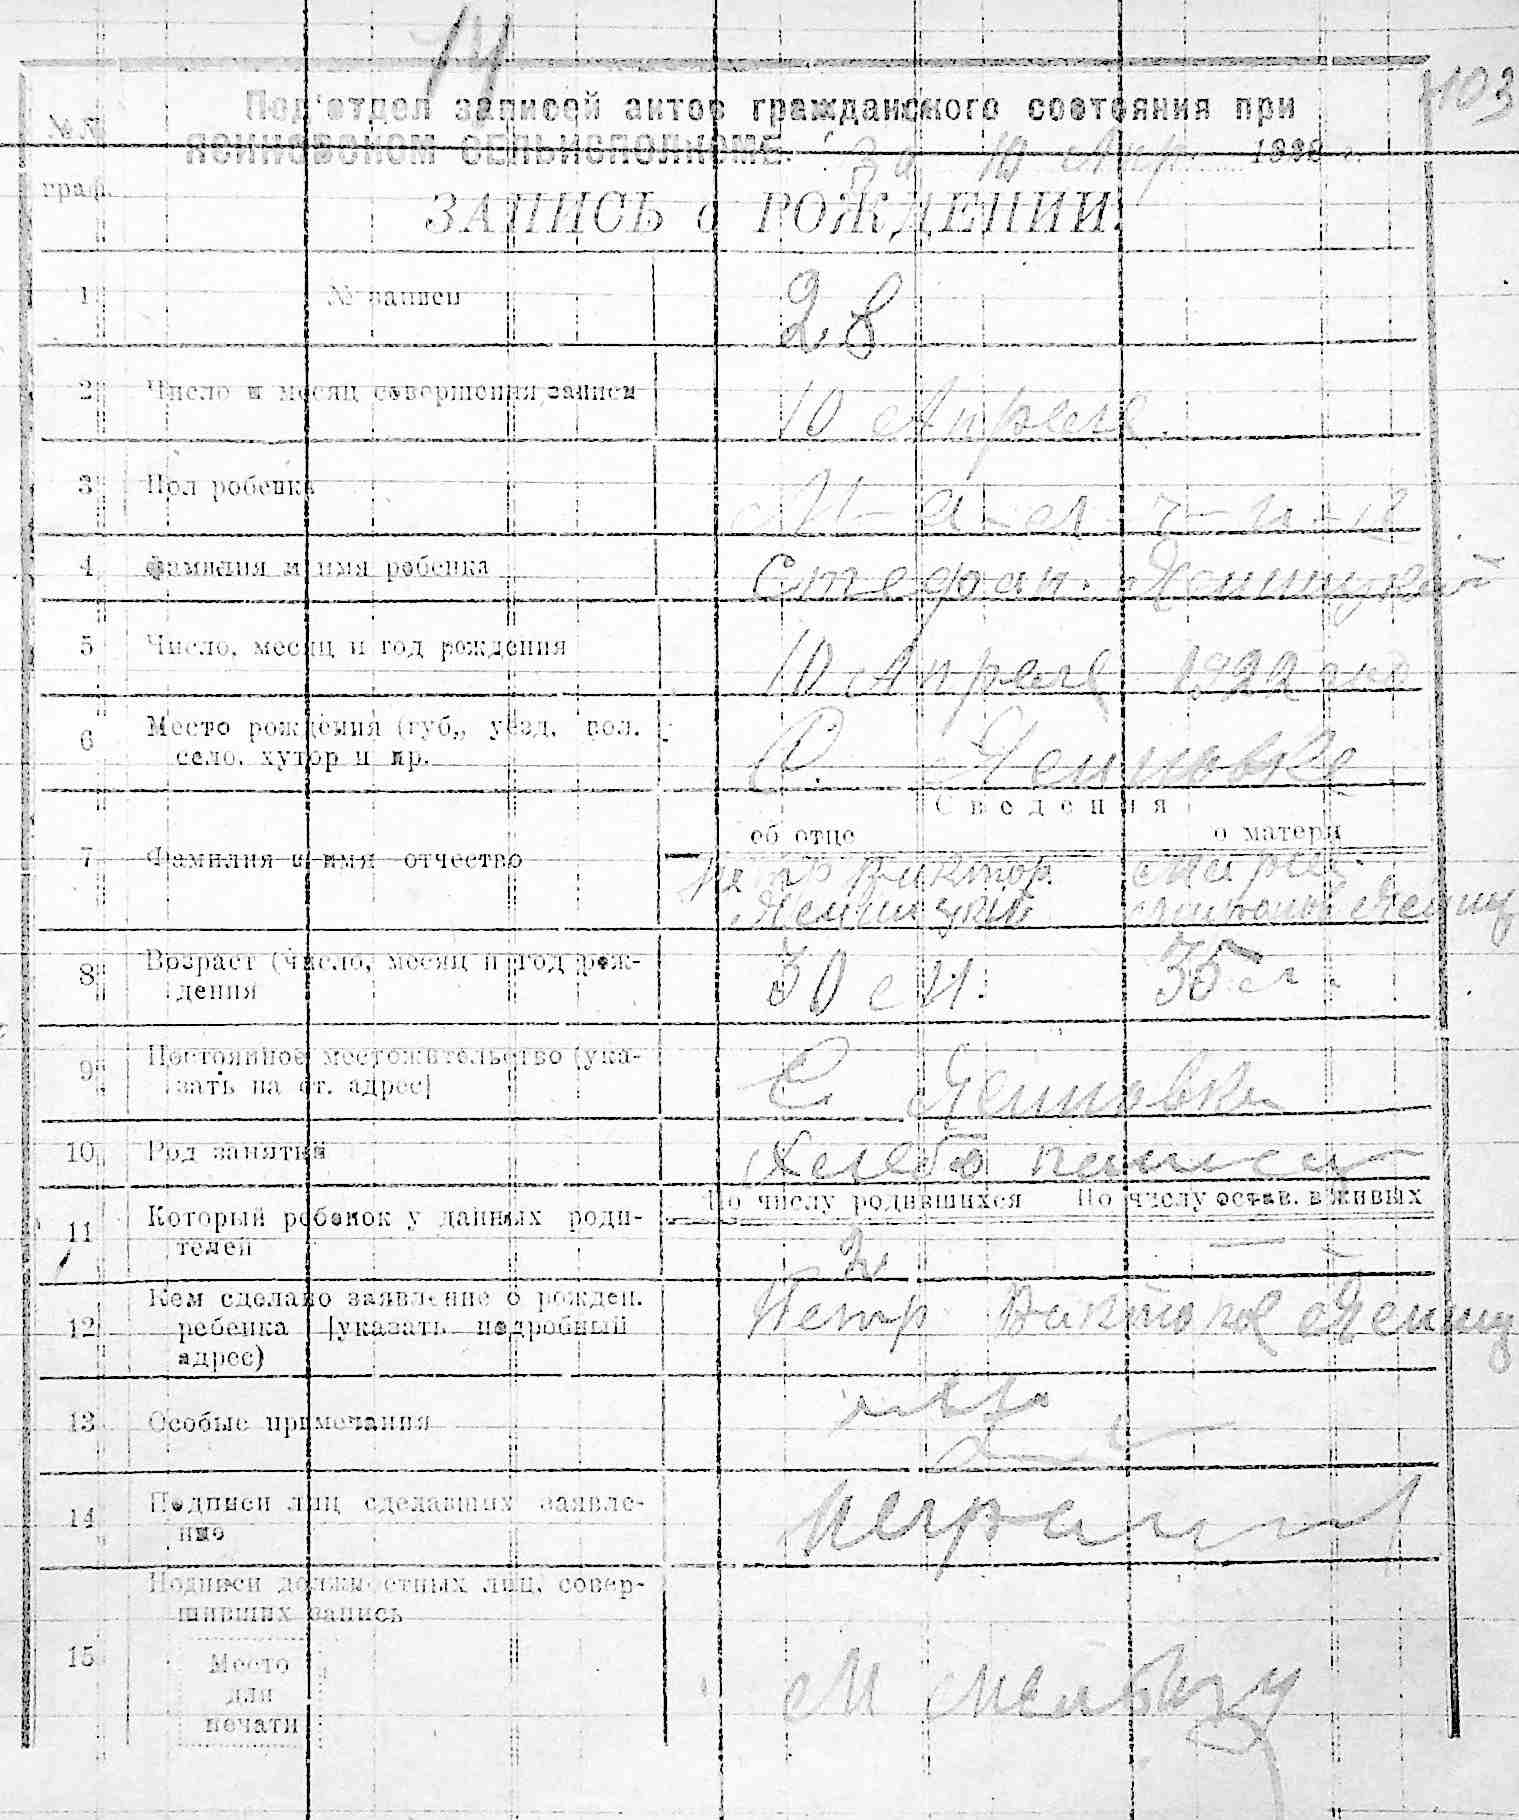 14
103
№№
граф.
Под‘отдел записей актов гражданского состояния при
ЯСИНОВСКОМ СЕЛЬИСПОЛКОМЕ. За 10 Апр 1922 г.
ЗАПИСЬ о РОЖДЕНИИ.
1 № записи 28
2 Число и месяц совершения записи 10 Апреля
3 Пол ребенка
4 Фамилия и имя ребенка Стефан
5 Число, месяц и год рождения 10 Апреля 1922 года
6 Место рождения (губ., уезд, вол. село, хутор и пр. С. Ясиновке
Сведения
об отце о матери
7 Фамилия и имя отчество Петр Виктор. Мария
8 Возраст (число, месяц и год рож-
дения 30 л. 35 л.
9 Постоянное местожительство (ука-
зать на ст. адрес) С Ясиновка
10 Род занятий Хлебо пашец
По числу родившихся По числу остав. в живых
11 Который ребенок у данных роди-
телей 2 —
12 Кем сделано заявление о рожден.
ребенка [указать подробный
адрес) Петр
13 Особые примечания нет
14 Подписи лиц сделавших заявле-
ние
Подписи должностных лиц, совер-
шивших запись
15
Место
для
печати